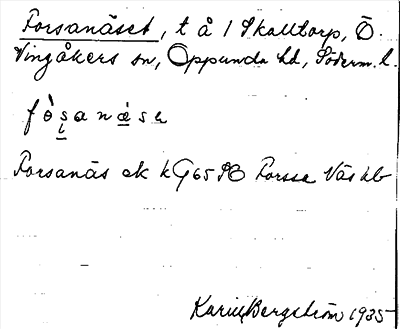 Forsanäset, t å / Skalltorp, Ö.
Vingåkers sn, Oppunda hd, Söderm. l.
fòsanäse
Forsanäs ek kG65SO Forssa Näs hb
Karin Bergström 1935